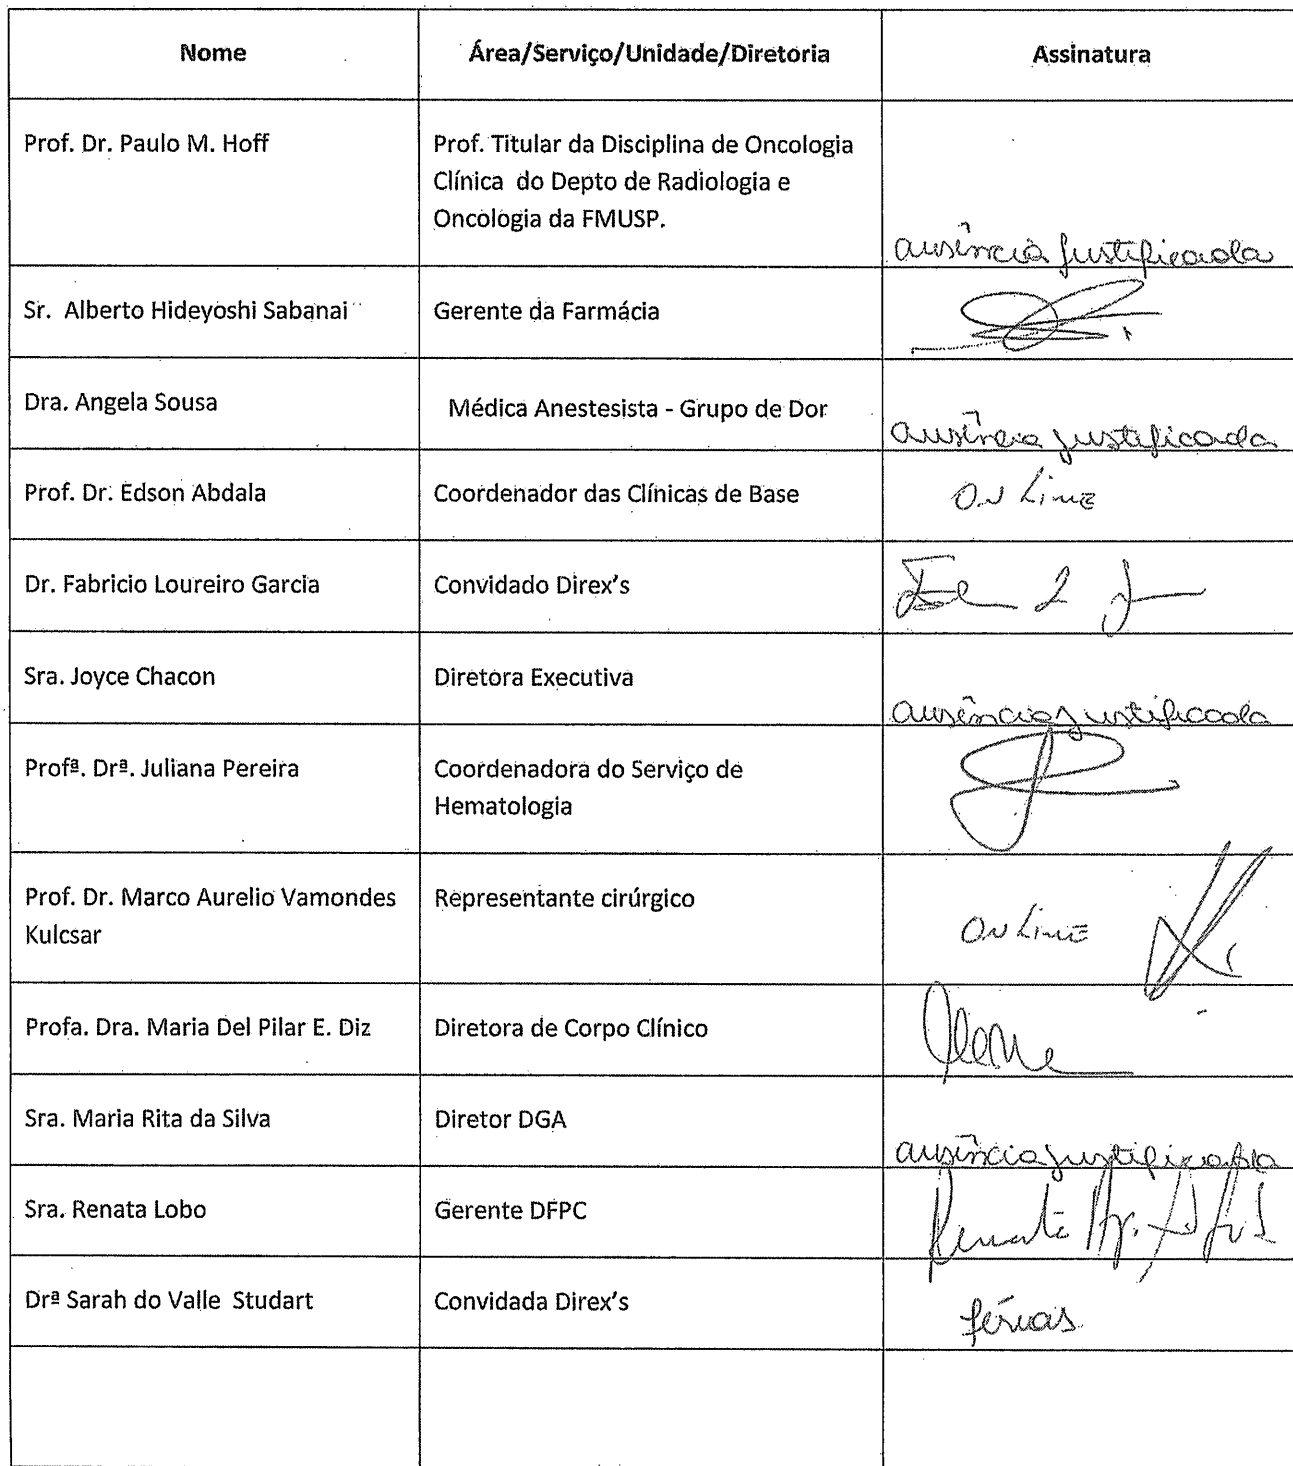 Nome Área/Serviço/Unidade/Diretoria Assinatura
Prof. Dr. Paulo M. Hoff Prof. Titular da Disciplina de Oncologia
Clínica do Depto de Radiologia e
Oncologia da FMUSP.
ausência justificada
Sr. Alberto Hideyoshi Sabanai Gerente da Farmácia
Dra. Angela Sousa Médica Anestesista - Grupo de Dor
ausência justificada
Prof. Dr. Edson Abdala Coordenador das Clínicas de Base ON LiNE
Dr. Fabricio Loureiro Garcia Convidado Direx's
Sra. Joyce Chacon Diretora Executiva
ausência justificada
Profª. Drª. Juliana Pereira Coordenadora do Serviço de
Hematologia
Prof. Dr. Marco Aurelio Vamondes Representante cirúrgico
Kulcsar ON LiNE
Profa. Dra. Maria Del Pilar E. Diz Diretora de Corpo Clínico
Sra. Maria Rita da Silva Diretor DGA
ausência justificada
Sra. Renata Lobo Gerente DFPC
Renata
Drª Sarah do Valle Studart Convidada Direx's férias